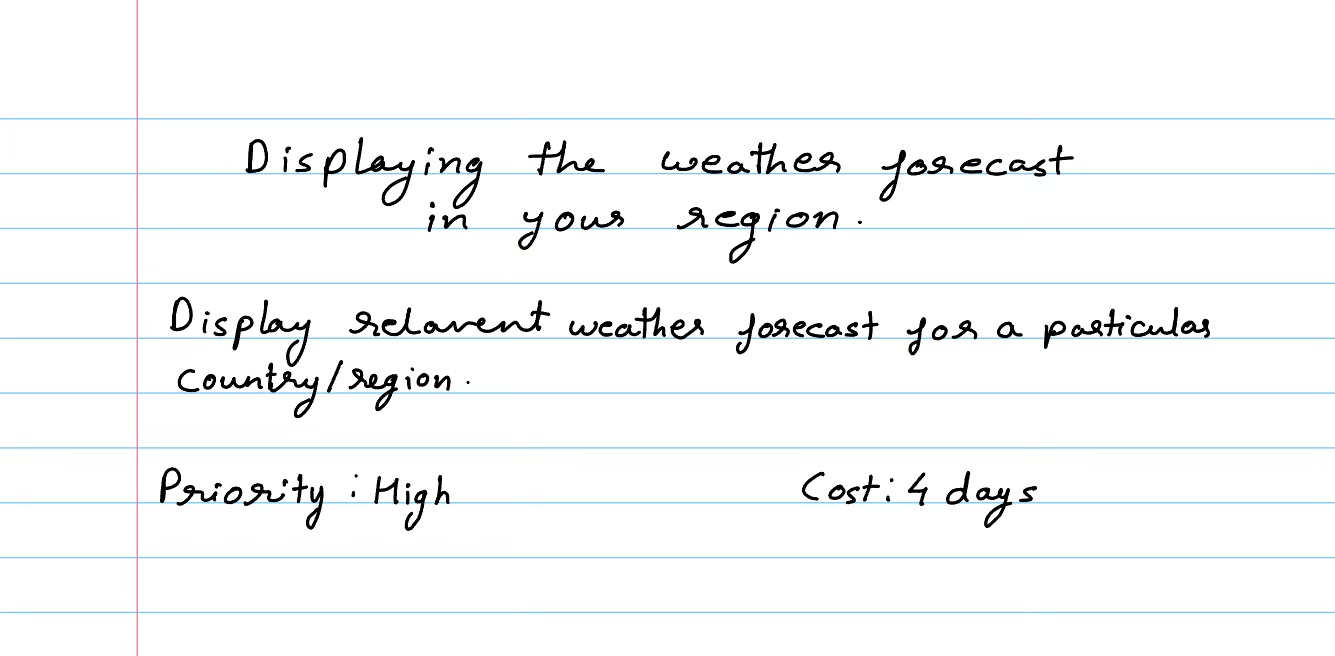 Displaying the weather forecast
in your region.
Display relavent weather forecast for a particular
country/region.
Priority : High Cost: 4 days